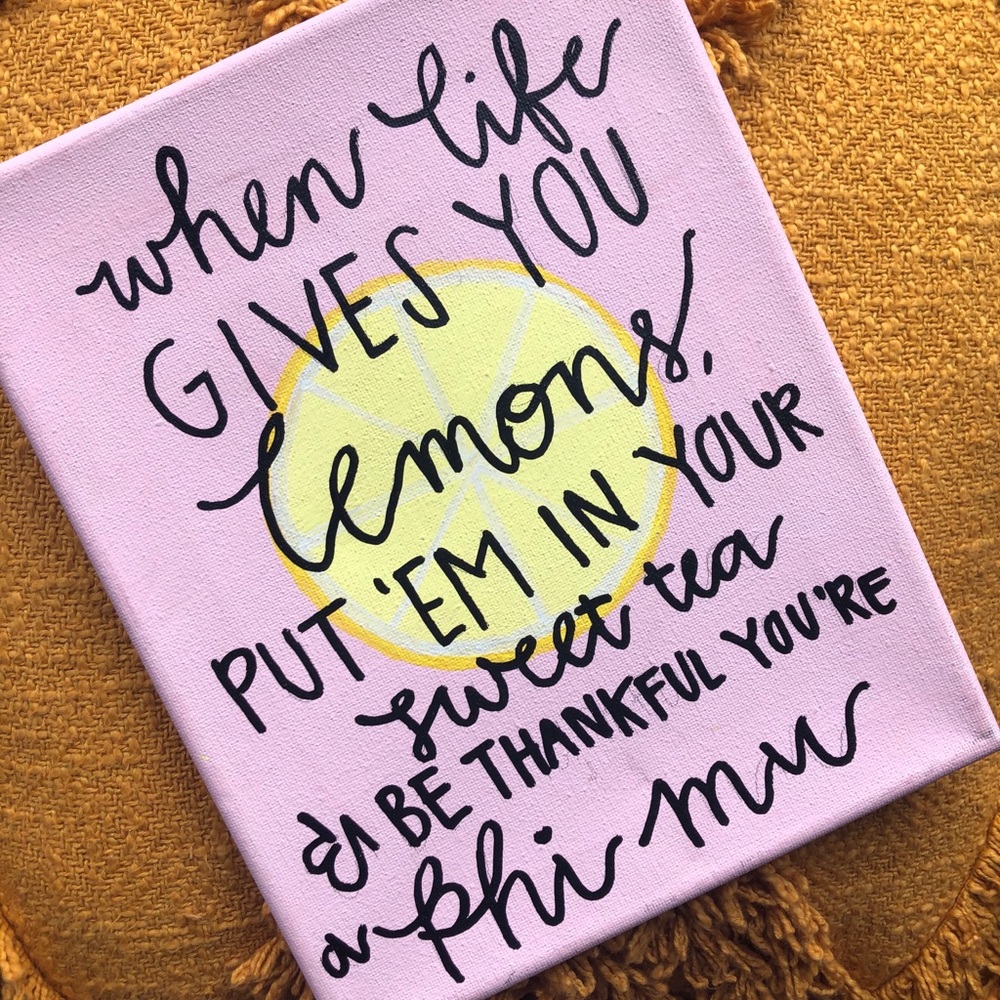 when life
GIVES YOU
lemons,
PUT 'EM IN YOUR
sweet tea
& BE THANKFUL YOU'RE
a phi mu